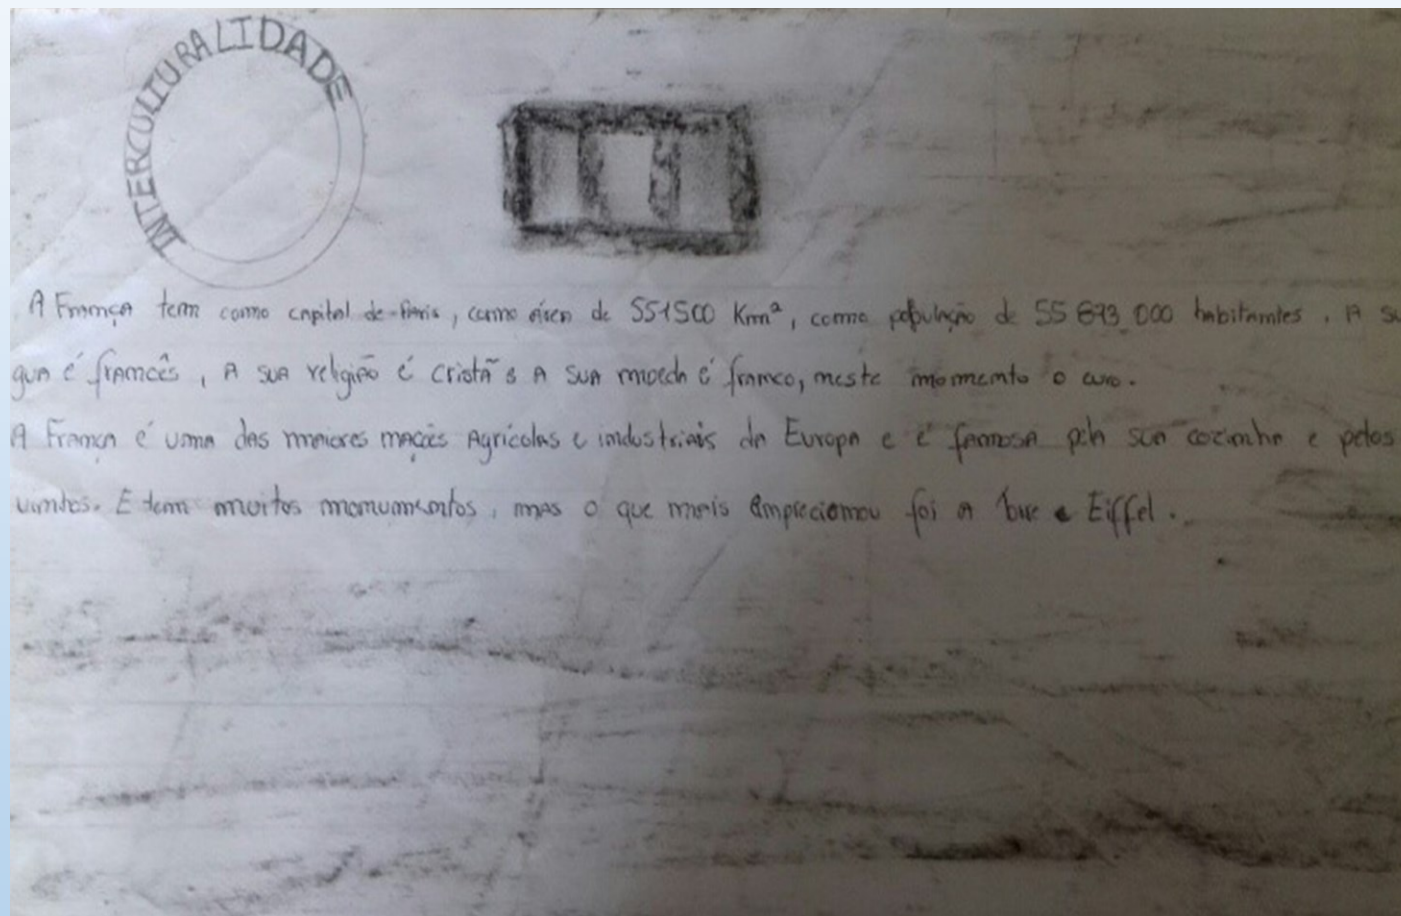 INTERCULTURALIDADE
A França tem como capital de Paris, como área de 551500 Km², como população de 55 873 000 habitantes. A su
gua é francês, A sua religião é cristã e A sua moeda é franco, neste momento o euro.
A França é uma das maiores nações Agrícolas e industriais da Europa e é famosa pela sua cozinha e pelos
vinhos. E tem muitos monumentos, mas o que mais empreciomou foi a Eiffel.